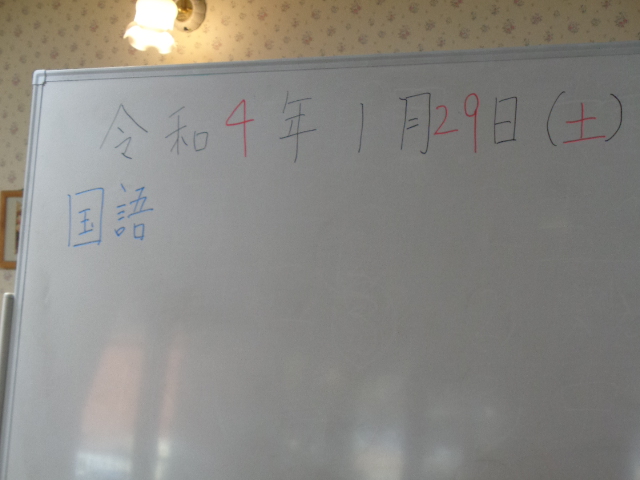 令和4年1月29日(土)
国語